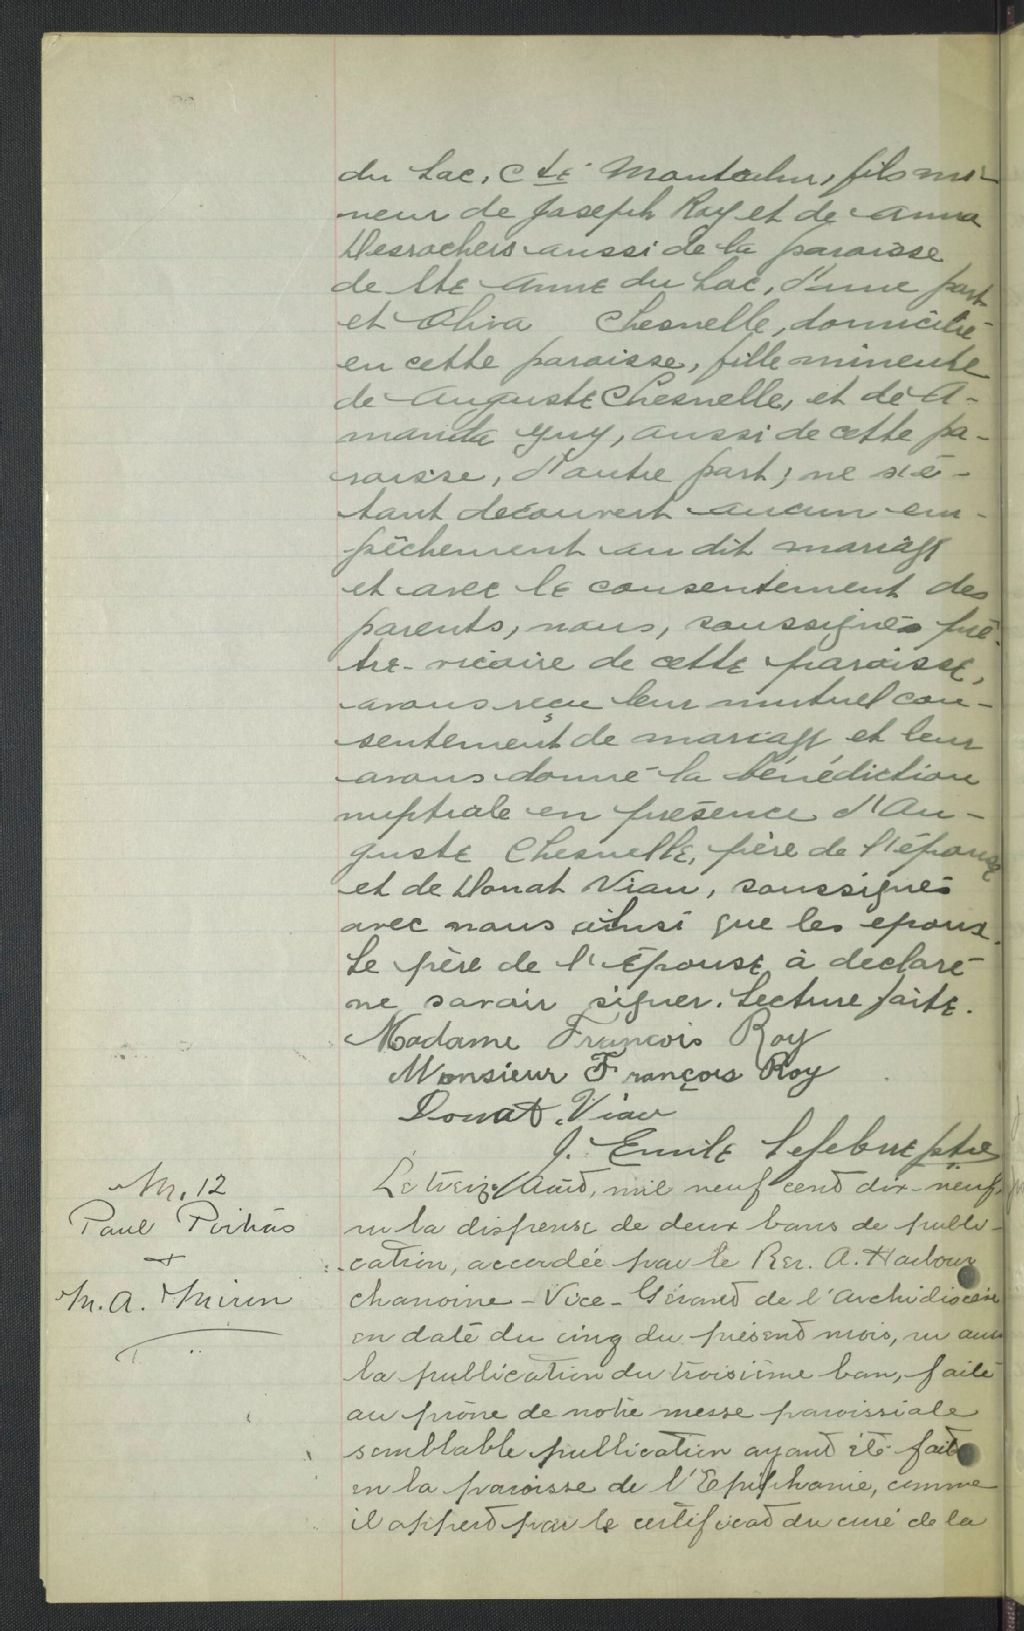 du Lac, Cté Montcalm, fils mi-
neur de Joseph Roy et de Anna
Desrochers aussi de la paroisse
de Ste Anne du Lac, d'une part
et Oliva Chesnelle, domicilié
en cette paroisse, fille mineure
de Auguste Chesnelle, et de A-
manda Guy, aussi de cette pa-
roisse, d'autre part; ne s'é-
tant découvert aucun em-
pêchement au dit mariage
et avec le consentement des
parents, nous, soussignés prê-
tre-vicaire de cette paroisse,
avons reçu leur mutuel con-
sentement de mariage et leur
avons donné la bénédiction
nuptiale en présence d'Au-
guste Chesnelle, père de l'épouse
et de Donat Viau, soussignés
avec nous ainsi que les epoux.
Le père de l'épouse à declaré
ne savoir signer. Lecture faite.
Madame François Roy
Monsieur François Roy
Donat Viau
J. Emile Lefebvre ptre
M. 12
Paul Poitras
+
M. A. Miron
Le treize Août, mil neuf cent dix-neuf,
vu la dispense de deux bans de publi-
cation, accordée par le Rev. A. Harbour
chanoine - Vice-Gérant de l'Archidiocèse
en date du cinq du présent mois, vu aussi
la publication du troisième ban, faite
au prône de notre messe paroissiale
semblable publication ayant été faite
en la paroisse de l'Epiphanie, comme
il appert par le certificat du curé de la